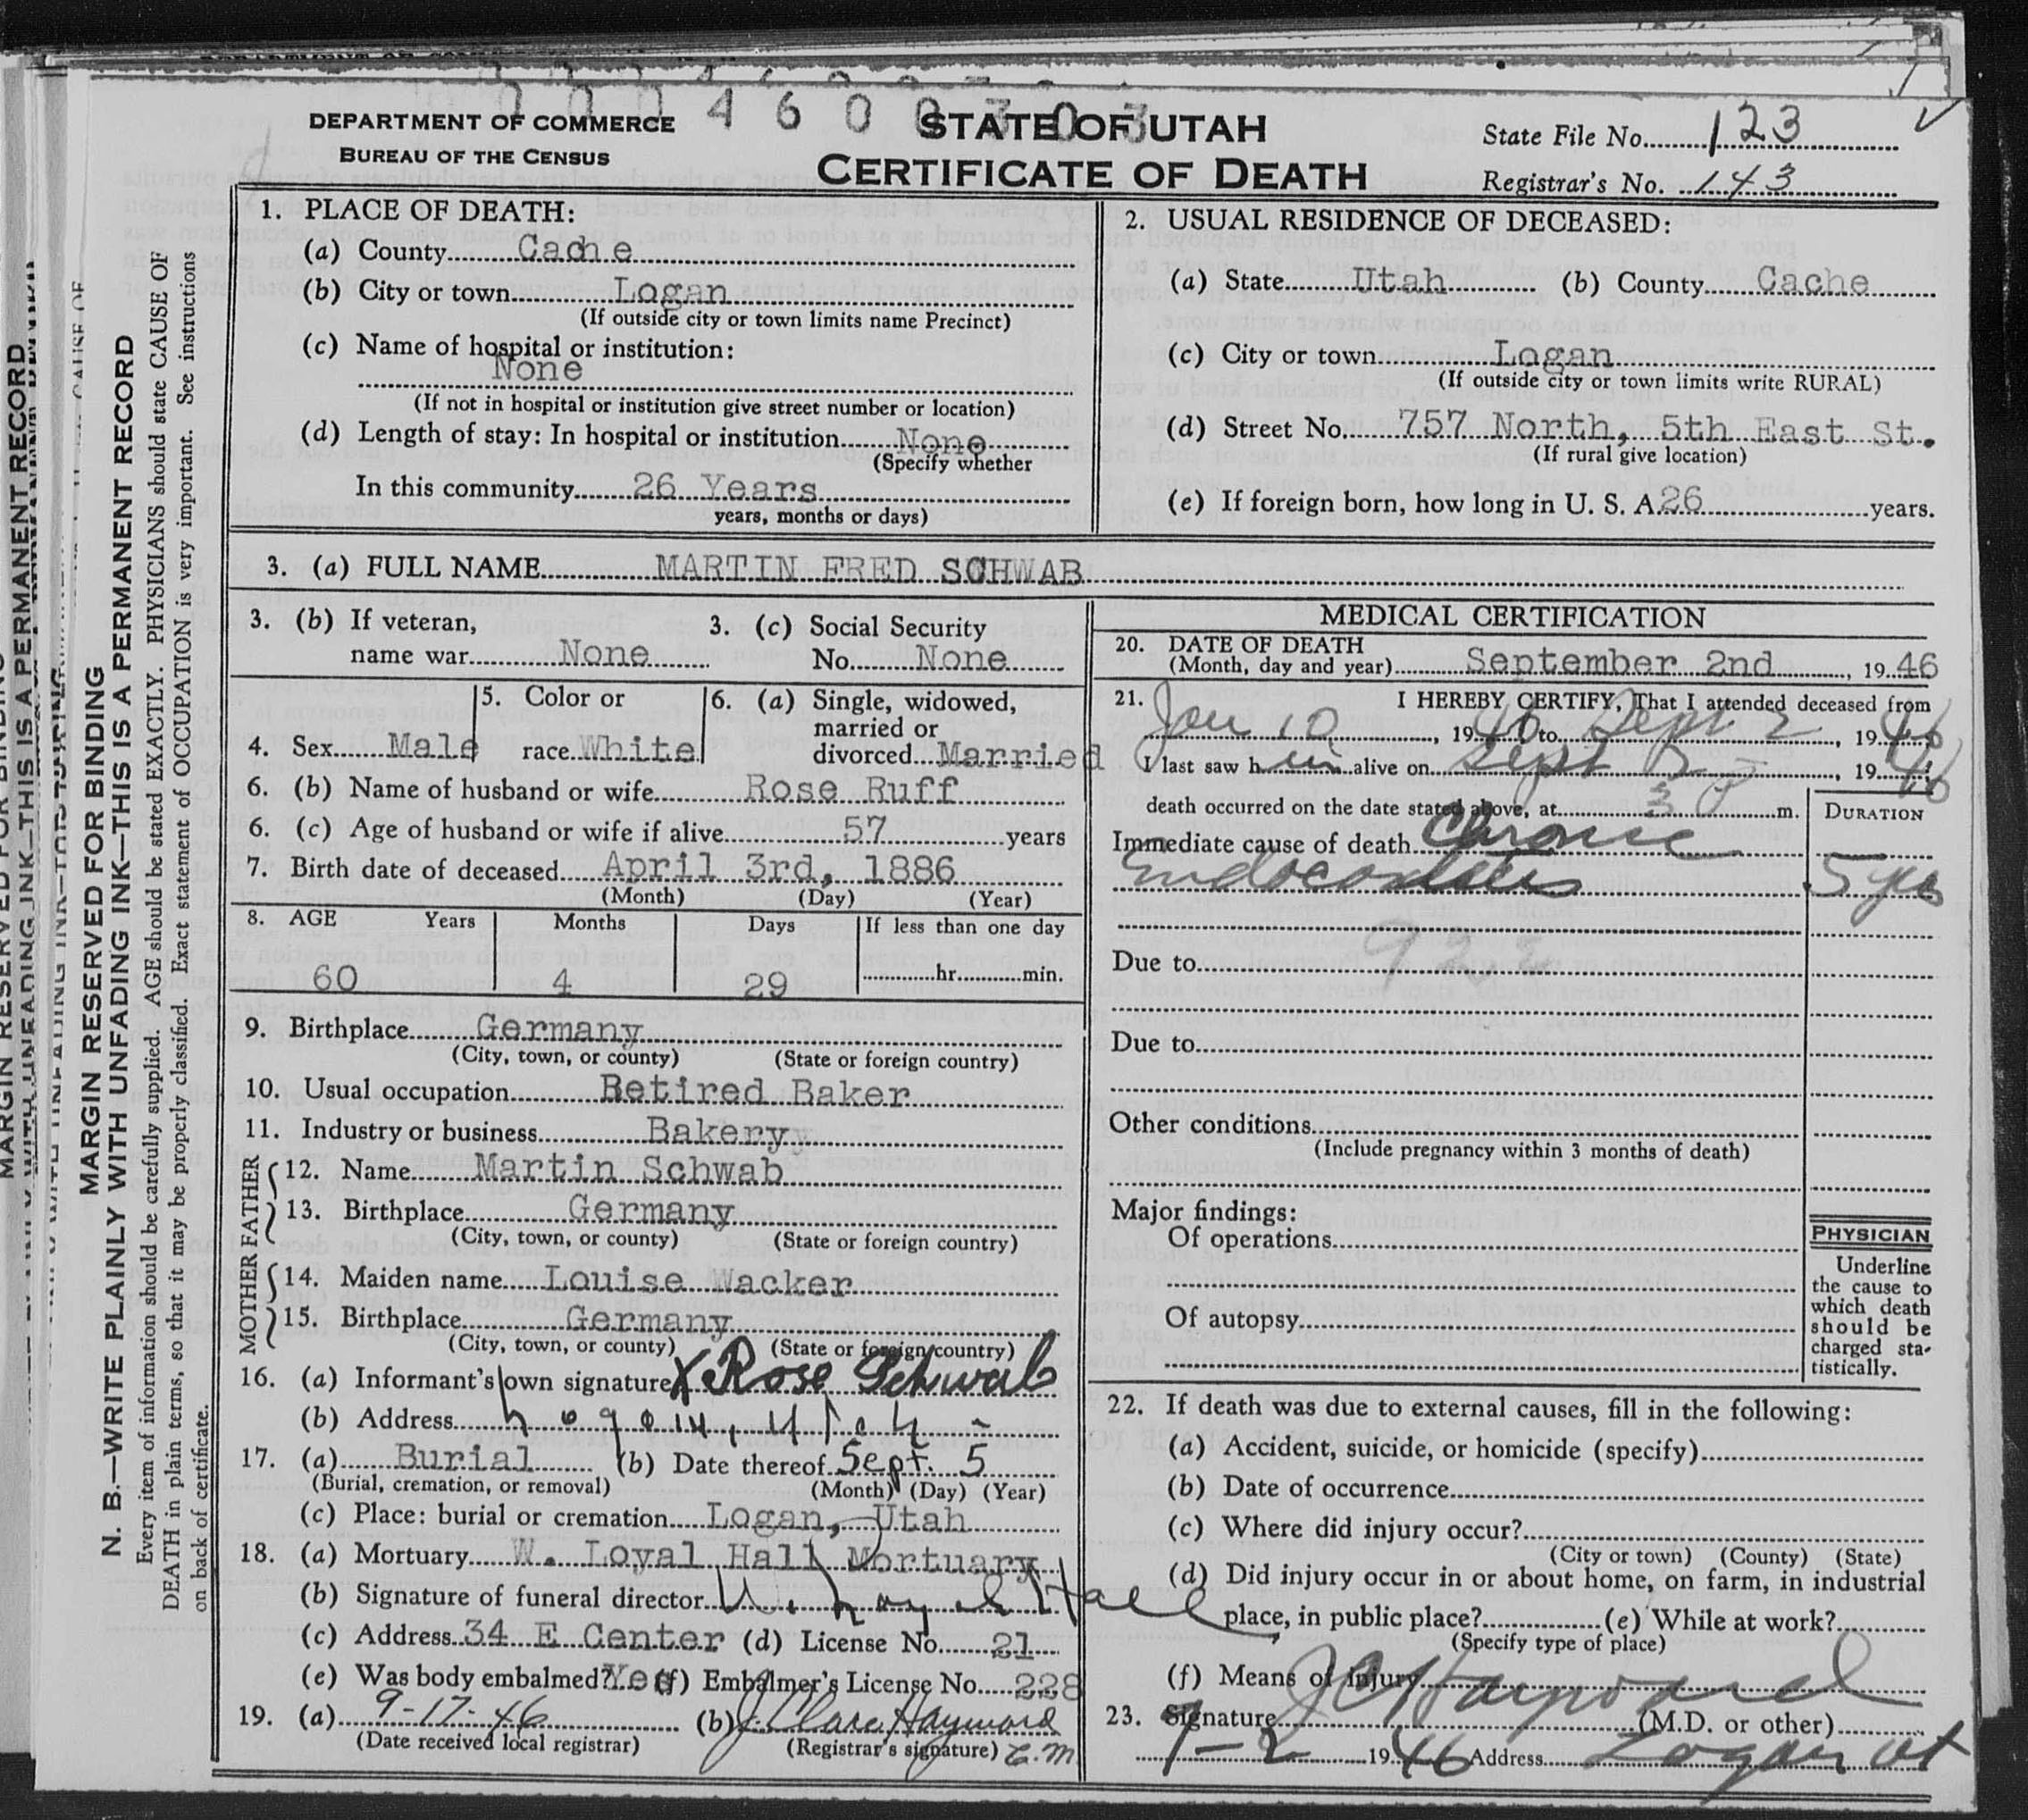 DEPARTMENT OF COMMERCE
BUREAU OF THE CENSUS
STATE OF UTAH
CERTIFICATE OF DEATH
State File No. 123
Registrar's No. 143
MARGIN RESERVED FOR BINDING
N. B.—WRITE PLAINLY WITH UNFADING INK—THIS IS A PERMANENT RECORD
Every item of information should be carefully supplied. AGE should be stated EXACTLY. PHYSICIANS should state CAUSE OF
DEATH in plain terms, so that it may be properly classified. Exact statement of OCCUPATION is very important. See instructions
on back of certificate.
1. PLACE OF DEATH:
(a) County Cache
(b) City or town Logan
(If outside city or town limits name Precinct)
(c) Name of hospital or institution:
None
(If not in hospital or institution give street number or location)
(d) Length of stay: In hospital or institution None
(Specify whether
In this community 26 Years
years, months or days)
2. USUAL RESIDENCE OF DECEASED:
(a) State Utah (b) County Cache
(c) City or town Logan
(If outside city or town limits write RURAL)
(d) Street No. 757 North, 5th East St.
(If rural give location)
(e) If foreign born, how long in U. S. A. 26 years.
3. (a) FULL NAME MARTIN FRED SCHWAB
3. (b) If veteran,
name war None
3. (c) Social Security
No. None
4. Sex Male
5. Color or
race White
6. (a) Single, widowed,
married or
divorced Married
6. (b) Name of husband or wife Rose Ruff
6. (c) Age of husband or wife if alive 57 years
7. Birth date of deceased April 3rd, 1886
(Month) (Day) (Year)
8. AGE Years Months Days If less than one day
60 4 29 hr. min.
9. Birthplace Germany
(City, town, or county) (State or foreign country)
10. Usual occupation Retired Baker
11. Industry or business Bakery
FATHER
12. Name Martin Schwab
13. Birthplace Germany
(City, town, or county) (State or foreign country)
MOTHER
14. Maiden name Louise Wacker
15. Birthplace Germany
(City, town, or county) (State or foreign country)
16. (a) Informant's own signature X Rose Schwab
(b) Address Logan, Utah
17. (a) Burial (b) Date thereof Sept. 5
(Burial, cremation, or removal) (Month) (Day) (Year)
(c) Place: burial or cremation Logan, Utah
18. (a) Mortuary W. Loyal Hall Mortuary
(b) Signature of funeral director W. Loyal Hall
(c) Address 34 E Center (d) License No. 21
(e) Was body embalmed? Yes (f) Embalmer's License No. 228
19. (a) 9-17-46 (b) J. Clare Hayward
(Date received local registrar) (Registrar's signature) E.M.
MEDICAL CERTIFICATION
20. DATE OF DEATH
(Month, day and year) September 2nd, 1946
21. I HEREBY CERTIFY, That I attended deceased from
Jan 10, 1946 to Sept 2, 1946
I last saw him alive on Sept, 1946
death occurred on the date stated above, at 3 P m.
DURATION
Immediate cause of death Chronic
Endocarditis 5 yrs
Due to
Due to
Other conditions
(Include pregnancy within 3 months of death)
Major findings:
Of operations
Of autopsy
PHYSICIAN
Underline
the cause to
which death
should be
charged sta-
tistically.
22. If death was due to external causes, fill in the following:
(a) Accident, suicide, or homicide (specify)
(b) Date of occurrence
(c) Where did injury occur?
(City or town) (County) (State)
(d) Did injury occur in or about home, on farm, in industrial
place, in public place? (e) While at work?
(Specify type of place)
(f) Means of injury
23. Signature J C Hayward (M.D. or other)
9-2 1946 Address Logan Ut